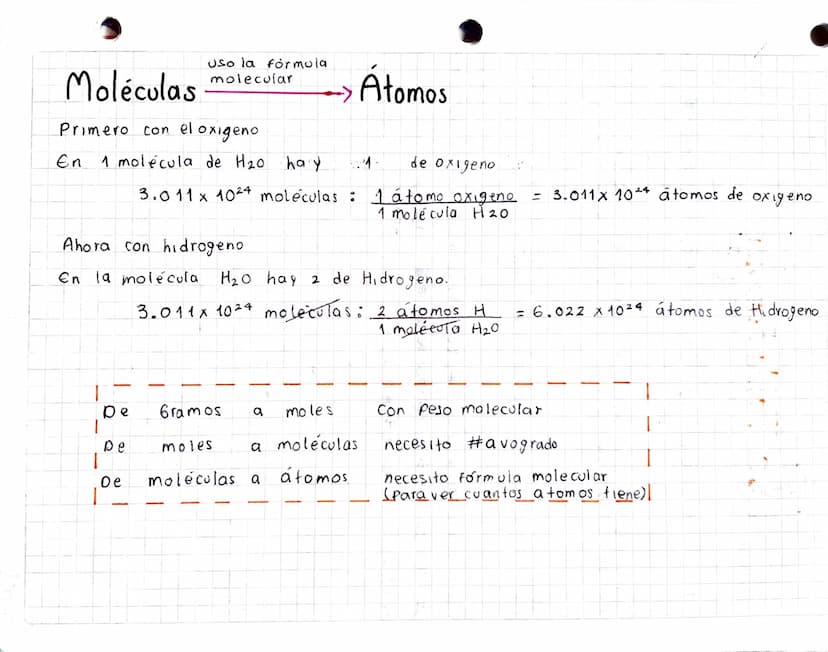 uso la fórmula
molecular
Moléculas → Átomos
Primero con el oxigeno
En 1 molécula de H2O hay ..1. de oxigeno
3.011 x 10²⁴ moléculas : 1 átomo oxigeno / 1 molécula H2O = 3.011 x 10²⁴ átomos de oxigeno
Ahora con hidrogeno
En la molécula H₂O hay 2 de Hidrogeno.
3.011 x 10²⁴ moleculas : 2 átomos H / 1 molécula H₂O = 6.022 x 10²⁴ átomos de Hidrogeno
De Gramos a moles con peso molecular
De moles a moléculas necesito #avogrado
De moléculas a átomos necesito fórmula molecular
(para ver cuantos atomos tiene)